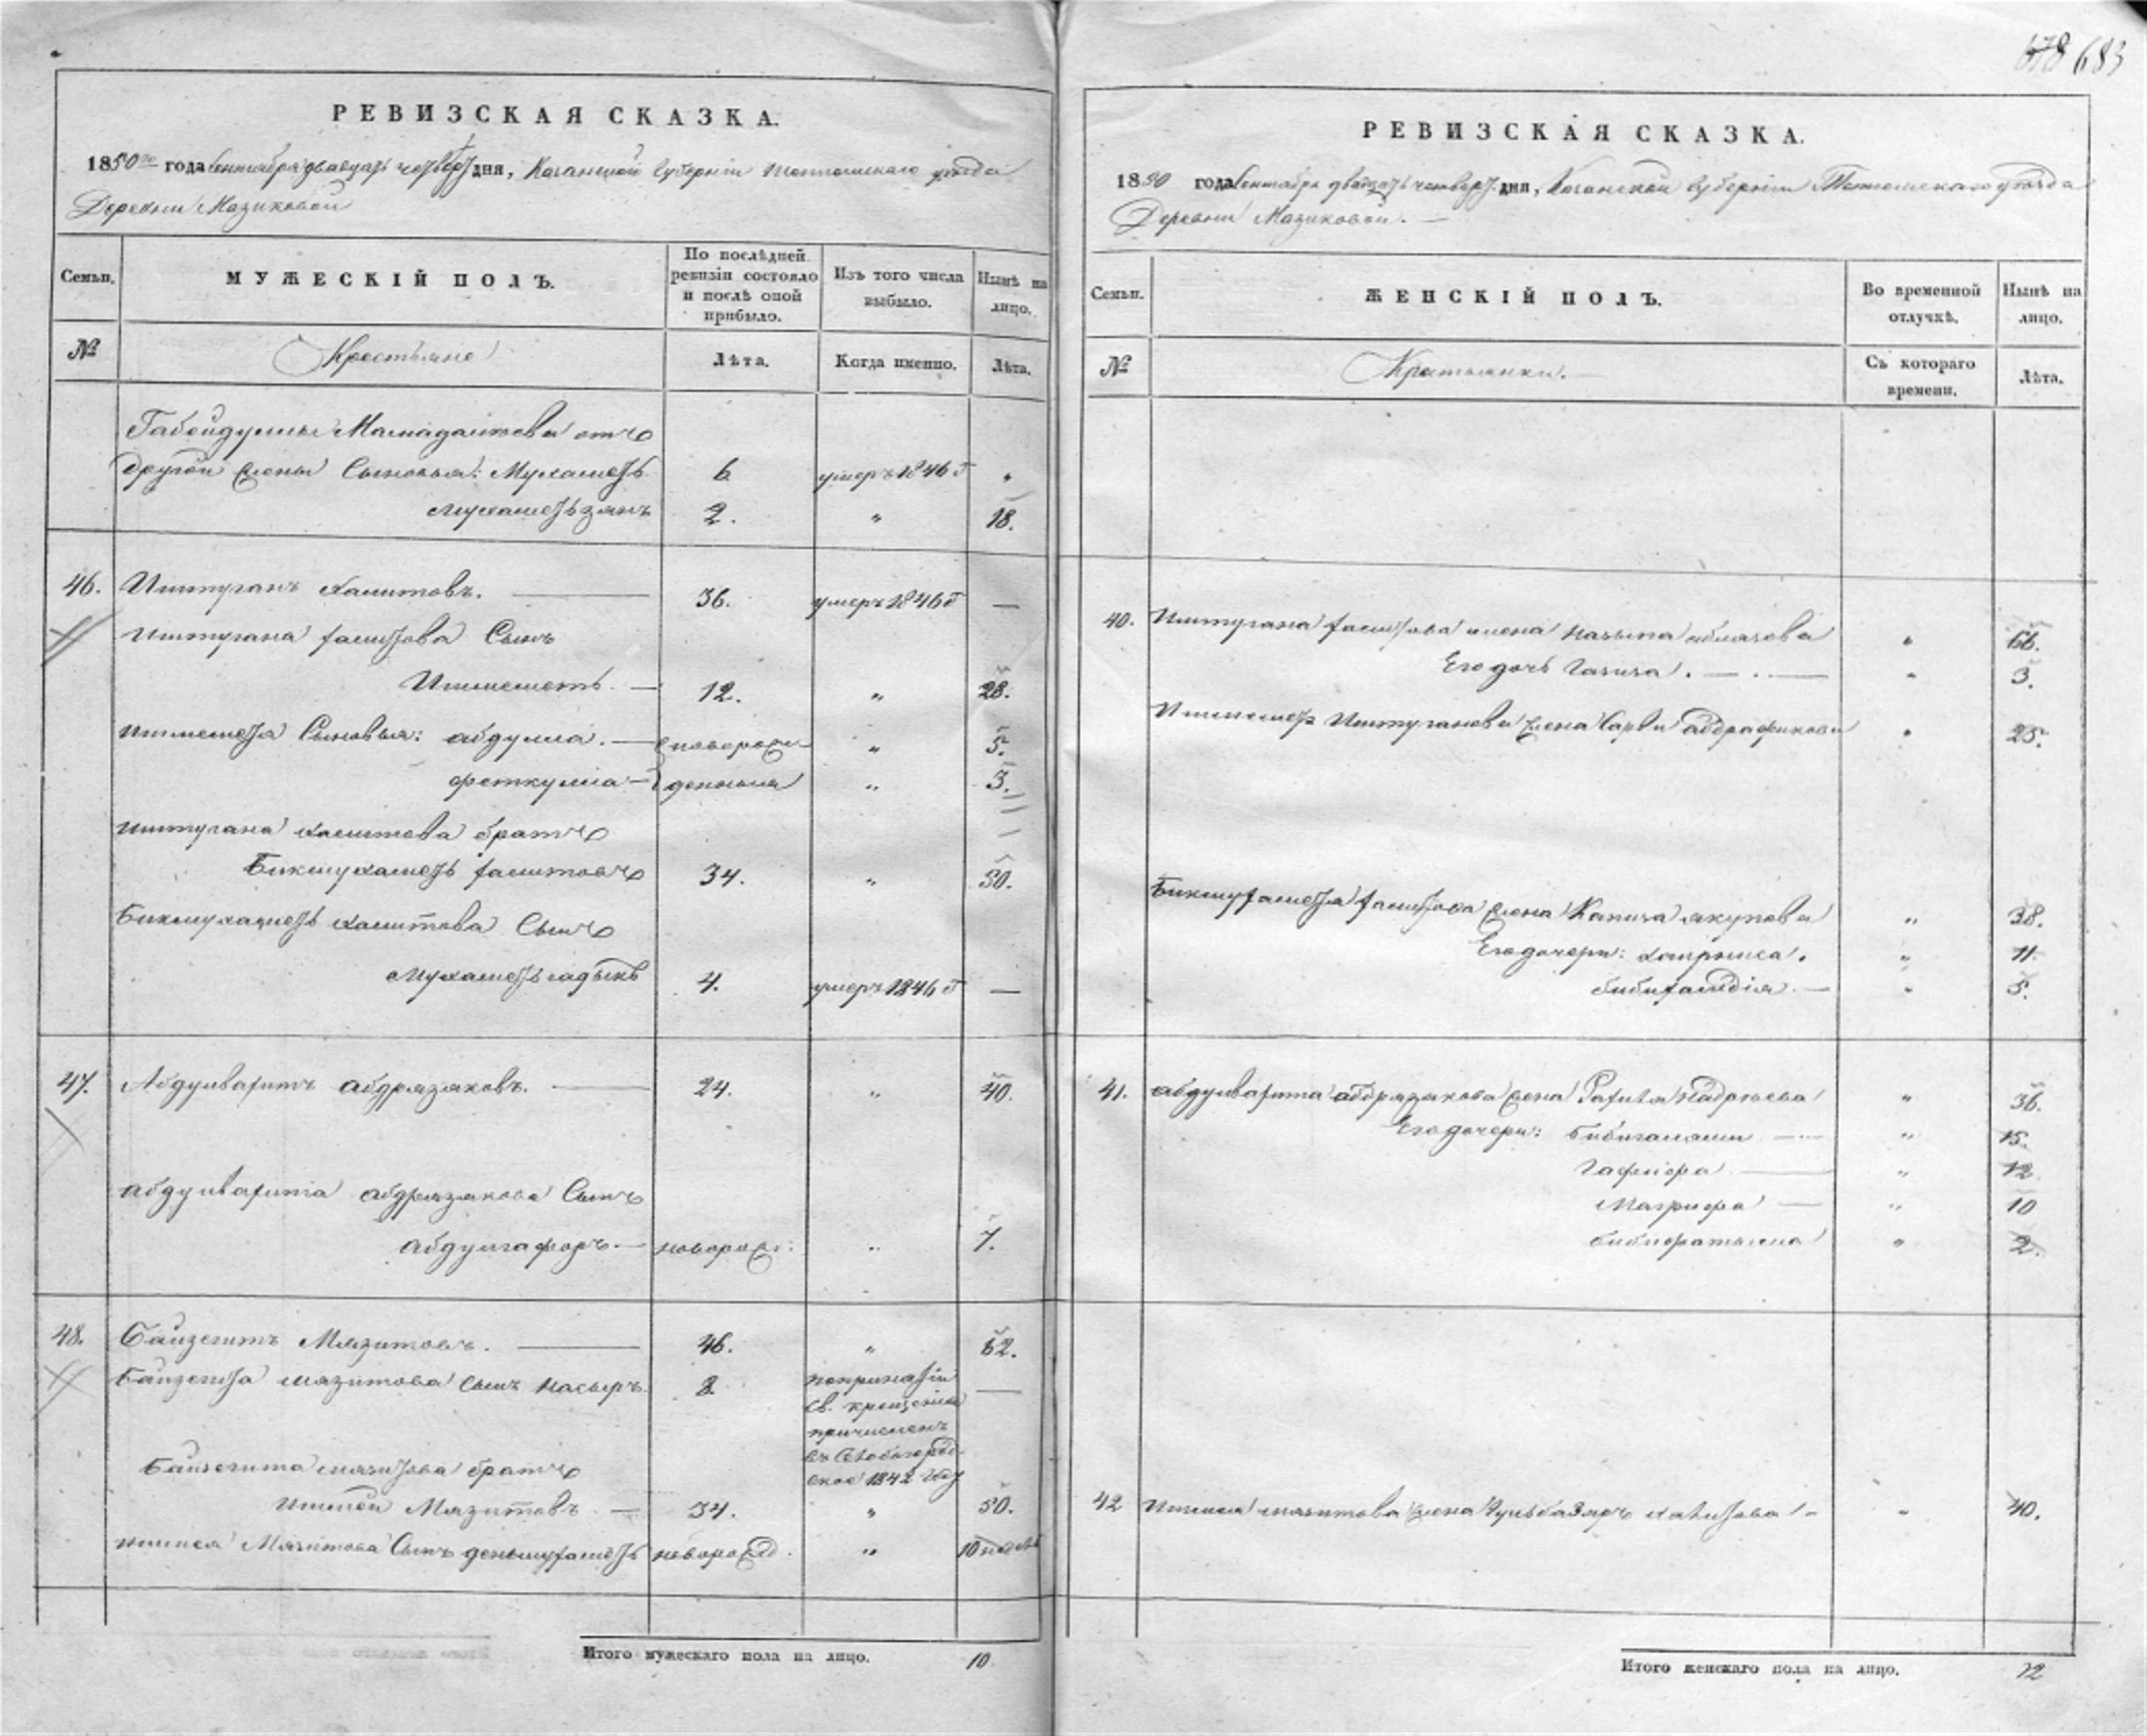 683
РЕВИЗСКАЯ СКАЗКА.
1850го года Сентября двадцать четверт дня, Казанской Губернии Тетюшскаго уезда
Деревни Мазиковой
Семьи.
МУЖЕСКІЙ ПОЛЪ.
По послѣдней ревизіи состояло и послѣ оной прибыло.
Изъ того числа выбыло.
Нынѣ на лицо.
№
Крестьяне
Лѣта.
Когда именно.
Лѣта.
Габейдуллы Мамадалиева отъ
другой жены Сыновья: Мухаметъ 6 умеръ 1846 г "
Мухаметьзянъ 2. " 18.
46. Иштуганъ Хамитовъ. — 36. умеръ 1846 г —
Иштугана Хамитова Сынъ
Ишмеметъ. — 12. " 28.
Ишмемета Сыновья: Абдулла. — новорож- " 5.
Феткулла — денныя " 3.
Иштугана Хамитова братъ
Бикмухаметъ Хамитовъ 34. " 50.
Бикмухаметъ Хамитова Сынъ
Мухаметьсадыкъ 4. умеръ 1846 г —
47. Абдулвахитъ Абдрязяковъ. — 24. " 40.
Абдулвахита Абдрязякова Сынъ
Абдулгафаръ. — новорож: " 7.
48. Баизегитъ Мязитовъ. — 46. " 62.
Баизегита Мязитова Сынъ Насыръ. 8. попринятіи —
Св. крещенія
причисленъ
въ
1842 году
Баизегита Мязитова братъ
Ишмей Мязитовъ — 34. " 50.
Ишмея Мязитова Сынъ деньмухаметъ новорожд. " 10 недѣль
Итого мужескаго пола на лицо. 10
РЕВИЗСКАЯ СКАЗКА.
1850 года Сентября двадцать четверт. дня, Казанской Губерніи Тетюшскаго уезда
Деревни Мазиковой. —
Семьи.
ЖЕНСКІЙ ПОЛЪ.
Во временной отлучкѣ.
Нынѣ на лицо.
№
Крестьянки. —
Съ котораго времени.
Лѣта.
40. Иштугана Хамитова жена " 66.
Его дочь Газиза. — " 3.
Ишмемета Иштуганова жена Сарви Абдрафикова " 25.
Бикмухамета Хамитова жена Капиза Якупова " 38.
Его дочери: " 11.
— " 5.
41. Абдулвахита Абдрязякова жена " 36.
Его дочери: — " 15.
Гафифа — " 12
Магрифа — " 10
" 2.
42 Ишмея Мязитова жена Гульбазяръ — " 40.
Итого женскаго пола на лицо. 12